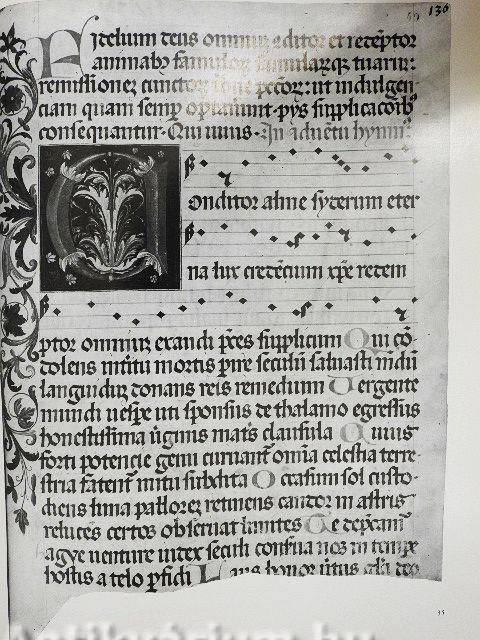 136
Fidelium deus omniũ cõditor et redẽptor
animabꝫ famuloꝝ famularũqꝫ tuarũ:
remissionez cunctoꝝ tribue pctõꝝ: ut indulgen
ciam quam semp optauerũt· pijs supplicacõibꝰ
consequantur· Qui uiuis· In aduẽtu hymnꝰ
Conditor alme syderum eter
na lux credencium xp̃e redem
ptor omniuꝫ exaudi p̃ces supplicum Qui cõ
dolens interitu mortis perire seculũ saluasti mũdũ
languiduꝫ donans reis remedium Uergente
mundi uespe uti sponsus de thalamo egressus
honestissima uirginis matris clausula Cuius
forti potencie genu curuant᷑ om̃ia celestia terre
stria fatent᷑ nutu subdita Occasum sol custo
diens luna pallorez retinens candor in astris
relucẽs certos obseruat limites Te dep̃camᷓ
agye uenture iudex seculi conserua nos in tempe
hostis a telo perfidi Laus honor uirtus glĩa deo
95